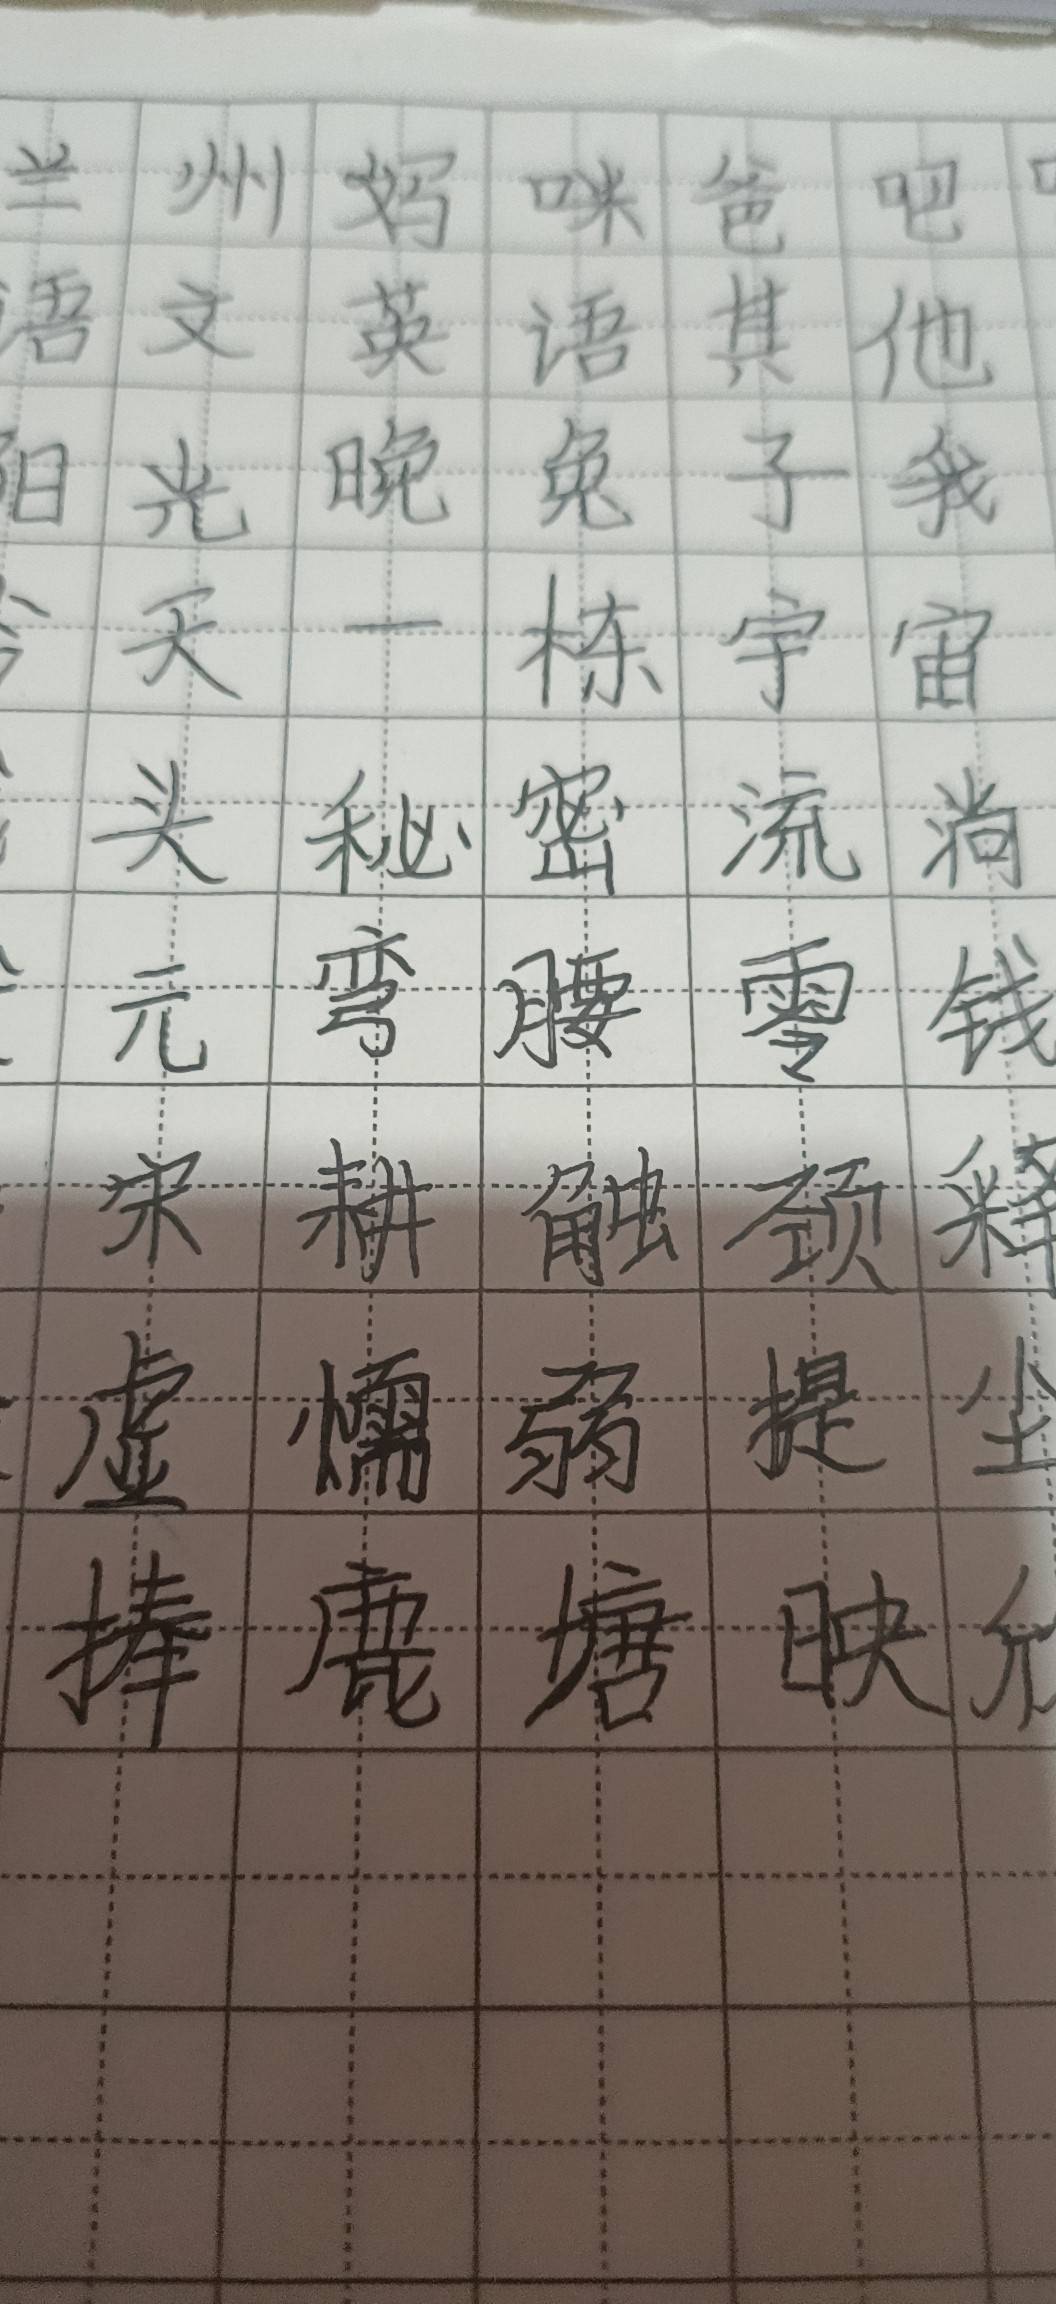 兰州妈咪爸吧
语文英语其他
阳光晚兔子我
天一栋宇宙
头秘密流淌
元弯腰零钱
宋耕触颈释
虚懦弱提尘
捧鹿塘映